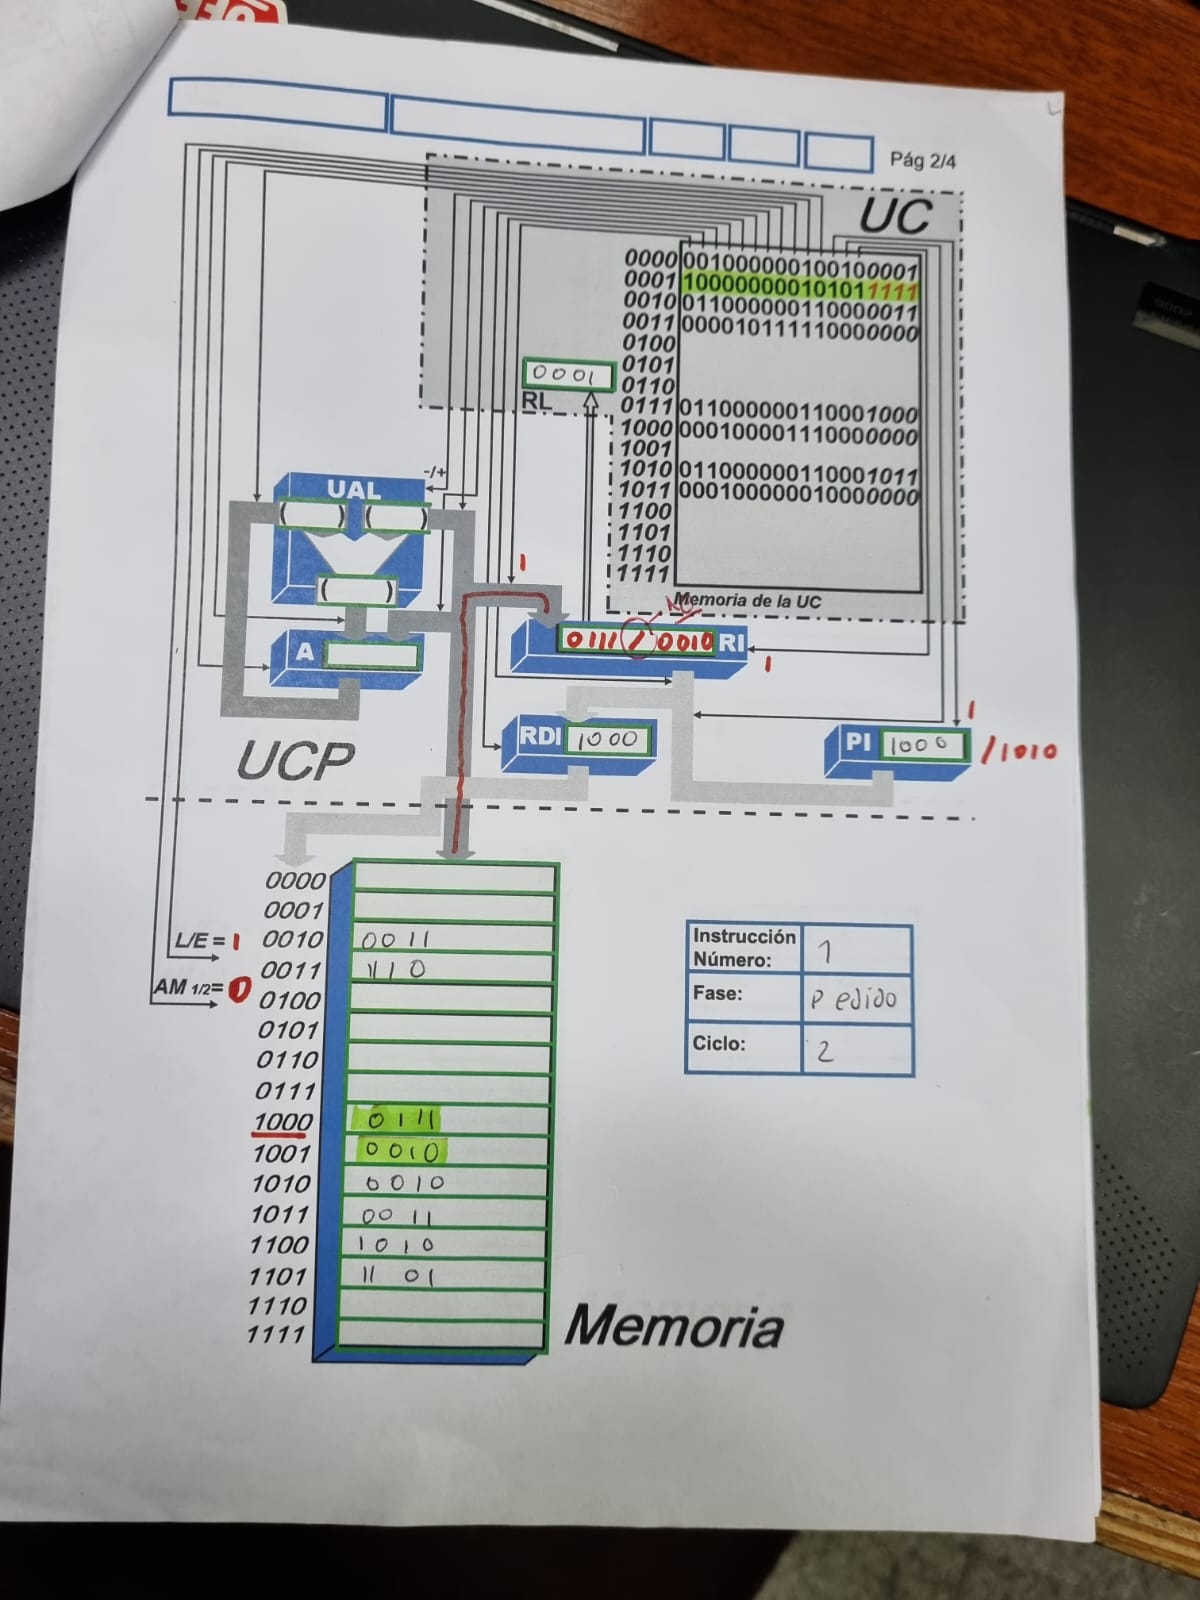 Pág 2/4
UC
0000 00100000010010 0001
0001 10000000010101 1111
0010 01100000011000 0011
0011 00001011111000 0000
0100
0101
0110
0111 01100000011000 1000
1000 00010000111000 0000
1001
1010 01100000011000 1011
1011 00010000001000 0000
1100
1101
1110
1111
Memoria de la UC
0001
RL
-/+
UAL
( ) ( )
( )
A
1
0111 / 0010 RI
1
RDI 1000
1
PI 1000 /1010
UCP
0000
0001
L/E = 1 0010 0011
0011 1110
AM 1/2= 0 0100
0101
0110
0111
1000 0111
1001 0010
1010 0010
1011 0011
1100 1010
1101 1101
1110
1111
Memoria
Instrucción Número: 1
Fase: Pedido
Ciclo: 2